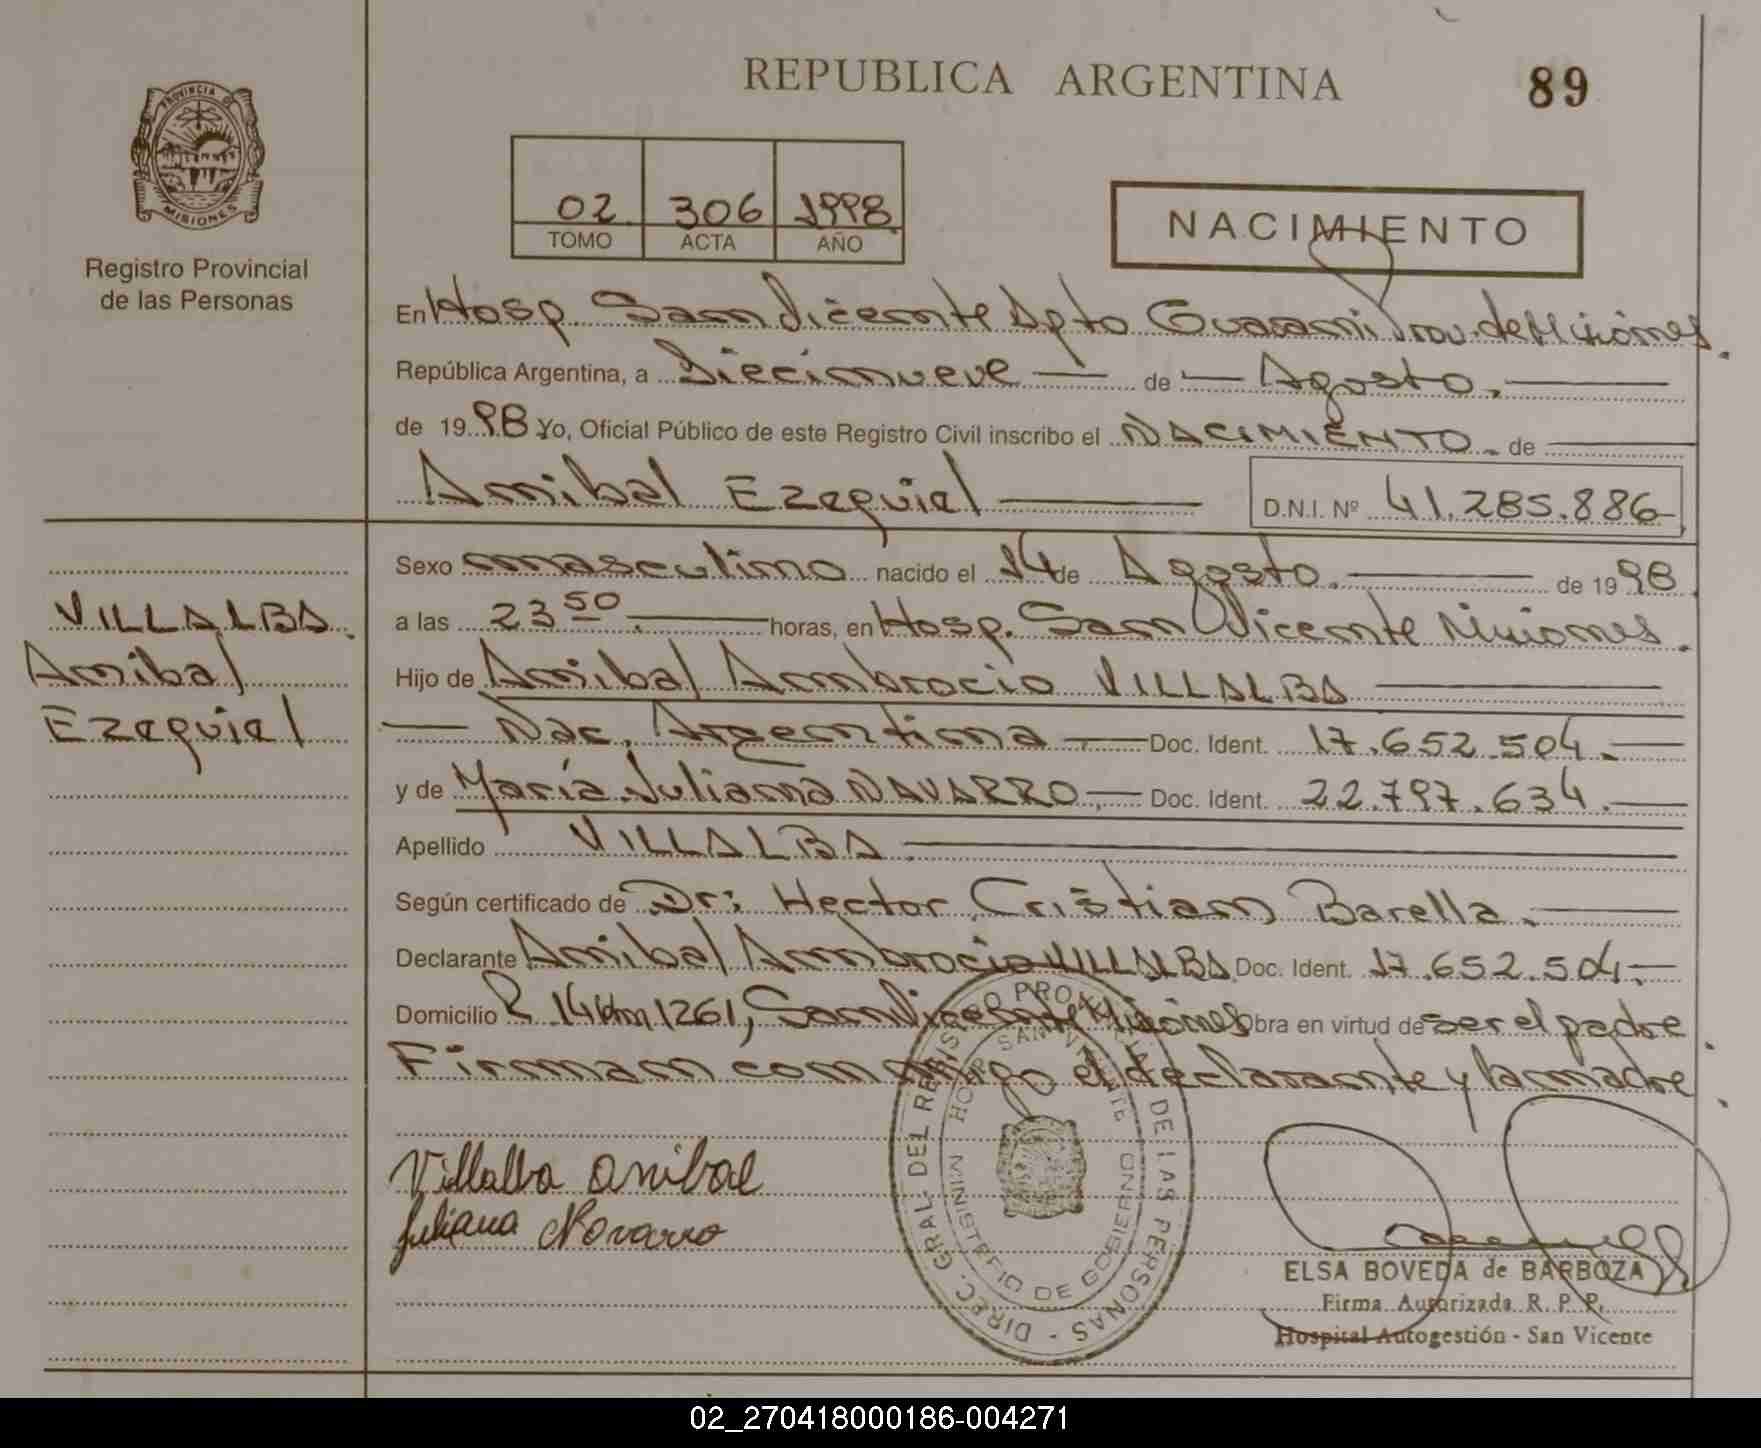 REPUBLICA ARGENTINA
89
PROVINCIA DE
MISIONES
Registro Provincial
de las Personas
02 306 1998
TOMO ACTA AÑO
NACIMIENTO
En Hosp. San Vicente Dpto Guarani Prov. de Misiones.
República Argentina, a Diecinueve de Agosto.
de 1998 Yo, Oficial Público de este Registro Civil inscribo el NACIMIENTO de
Anibal Ezequiel D.N.I. Nº 41.285.886
VILLALBA.
Anibal
Ezequiel
Sexo masculino nacido el 14 de Agosto. de 1998
a las 23 50 horas, en Hosp. San Vicente Misiones.
Hijo de Anibal Ambrocio VILLALBA
Nac. Argentina Doc. Ident. 17.652.504.
y de María Juliana NAVARRO, Doc. Ident. 22.797.634.
Apellido VILLALBA
Según certificado de Dr: Hector Cristian Barella.
Declarante Anibal Ambrocio VILLALBA Doc. Ident. 17.652.504.
Domicilio R. 14 km 1261, San Vicente Misiones Obra en virtud de ser el padre
Firman conmigo el declarante y la madre
Villalba Anibal
Juliana Navarro
DIREC. GRAL. DEL REGISTRO PROVINCIAL DE LAS PERSONAS -
HOSP. SAN VICENTE
MINISTERIO DE GOBIERNO
ELSA BOVEDA de BARBOZA
Firma Autorizada R. P. P.
Hospital Autogestión - San Vicente
02_270418000186-004271